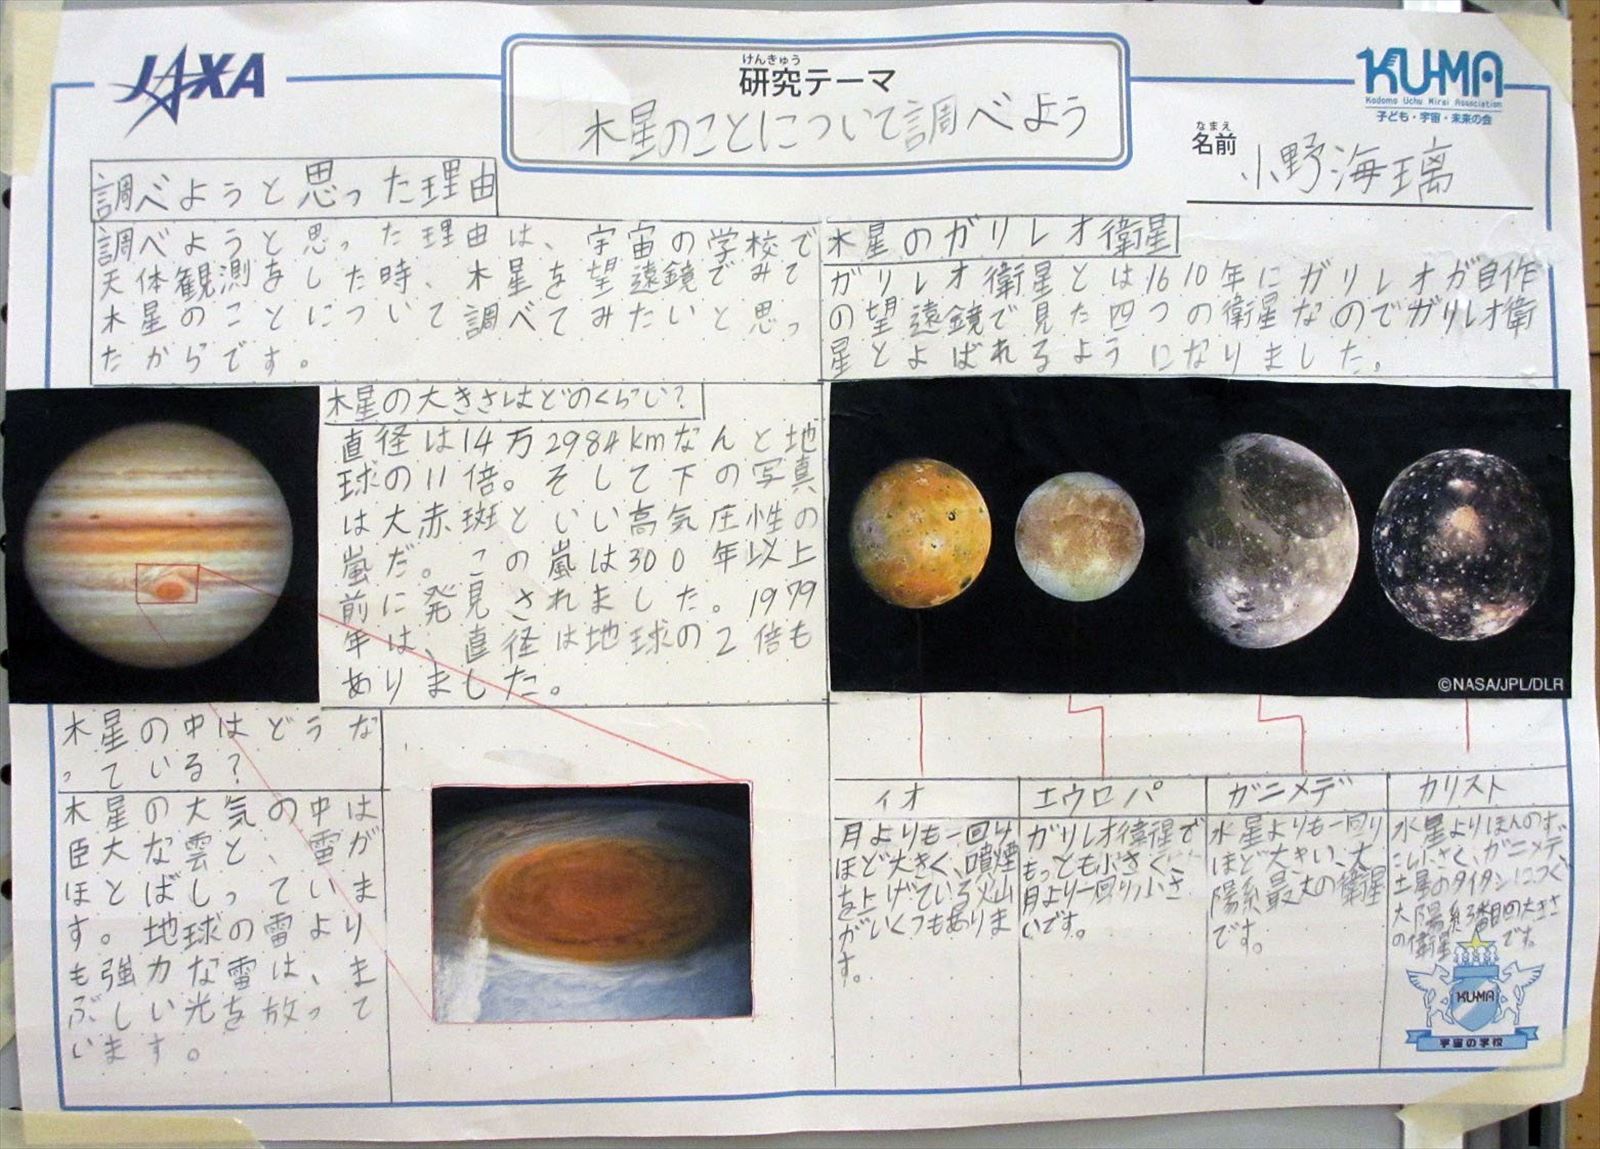 JAXA
けんきゅう
研究テーマ
木星のことについて調べよう
KU-MA
Kodomo Uchu Mirai Association
子ども・宇宙・未来の会
なまえ
名前
小野海璃
調べようと思った理由
調べようと思った理由は、宇宙の学校で
天体観測をした時、木星を望遠鏡でみて
木星のことについて調べてみたいと思っ
たからです。
木星の大きさはどのくらい?
直径は14万2984kmなんと地
球の11倍。そして下の写真
は大赤斑といい高気圧性の
嵐だ。この嵐は300年以上
前に発見されました。1979
年は、直径は地球の2倍も
ありました。
木星の中はどうな
っている?
木星の大気の中は
臣大な雲と、雷が
ほとばしっていま
す。地球の雷より
も強力な雷は、ま
ぶしい光を放って
います。
木星のガリレオ衛星
ガリレオ衛星とは1610年にガリレオが自作
の望遠鏡で見た四つの衛星なのでガリレオ衛
星とよばれるようになりました。
©NASA/JPL/DLR
イオ
月よりも一回り
ほど大きく、噴煙
を上げている火山
がいくつもありま
す。
エウロパ
ガリレオ衛星で
もっとも小さく
月より一回り小さ
いです。
ガニメデ
水星よりも一回り
ほど大きい、太
陽系最大の衛星
です。
カリスト
水星よりほんのす
こし小さく、ガニメデ、
土星のタイタンにつぐ、
太陽系3番目の大きさ
の衛星です。
KU-MA
宇宙の学校